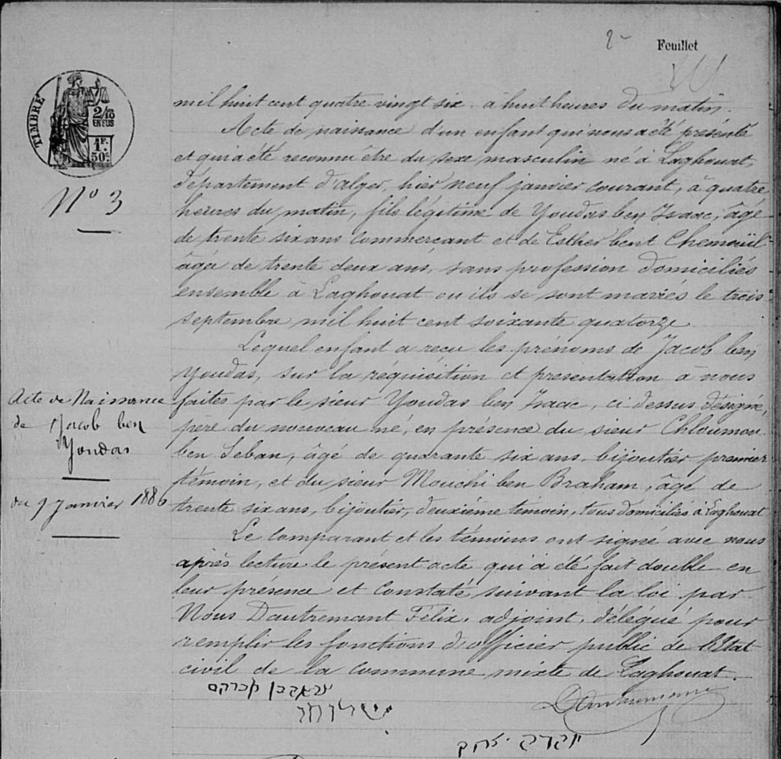 2
Feuillet
TIMBRE
2/10 EN SUS
1F. 50c.
mil huit cent quatre vingt six à huit heures du matin.
Acte de naissance d'un enfant qui nous a été présenté
et qui a été reconnu être du sexe masculin né à Laghouat,
département d'alger, hier neuf janvier courant, à quatre
heures du matin, fils légitime de Youdas ben Isaac, âgé
de trente six ans commerçant et de Esther bent Chemouïl
âgée de trente deux ans, sans profession domiciliés
ensemble à Laghouat ou ils se sont mariés le trois
septembre mil huit cent soixante quatorze
Lequel enfant a reçu les prénoms de Jacob ben
Youdas, sur la réquisition et présentation à nous
faites par le sieur Youdas ben Isaac, ci dessus désigné,
père du nouveau né, en présence du sieur Chloumou
ben Seban, âgé de quarante six ans, bijoutier premier
témoin, et du sieur Mouchi ben Braham, âgé de
trente six ans, bijoutier, deuxième témoin, tous domiciliés à Laghouat
Le comparant et les témoins ont signé avec nous
après lecture le présent acte qui a été fait double en
leur présence et constaté suivant la loi par
Nous Dautremant Félix, adjoint, délégué pour
remplir les fonctions d'officier public de l'Etat
civil de la commune mixte de Laghouat.
No 3
Acte de Naissance
de Jacob ben
Youdas
du 9 Janvier 1886